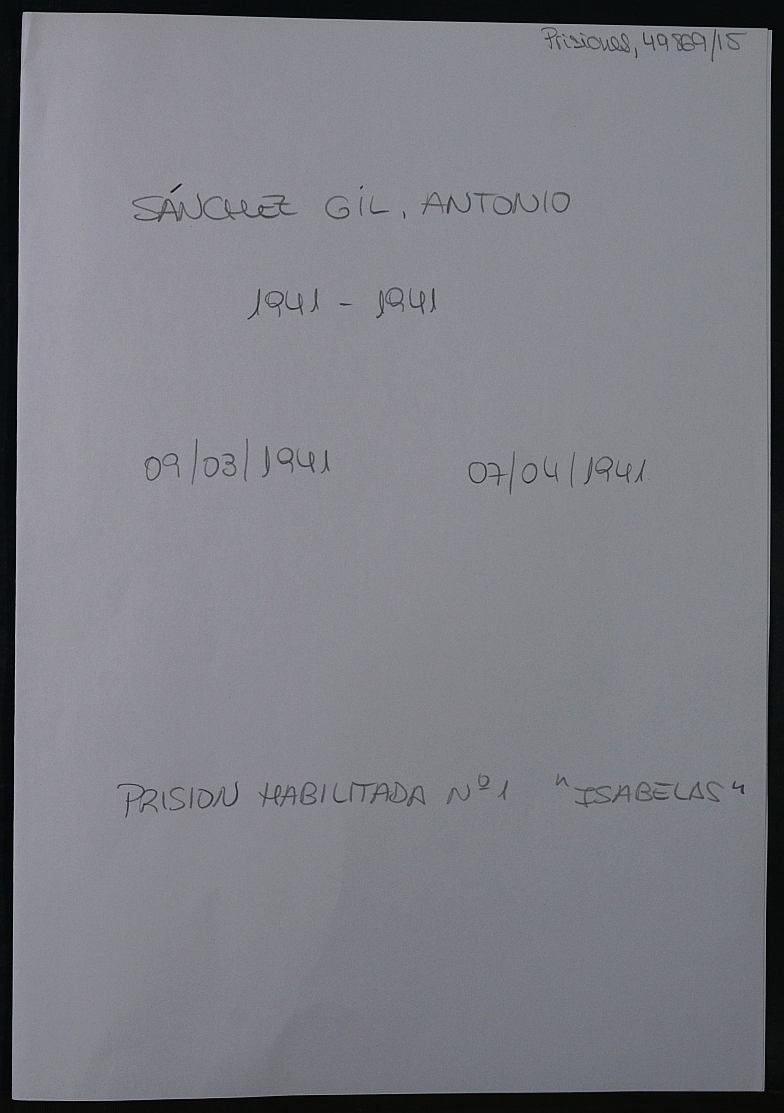 Prisiones, 49869/15
SÁNCHEZ GIL, ANTONIO
1941 - 1941
09/03/1941 07/04/1941
PRISION HABILITADA Nº1 "ISABELAS"